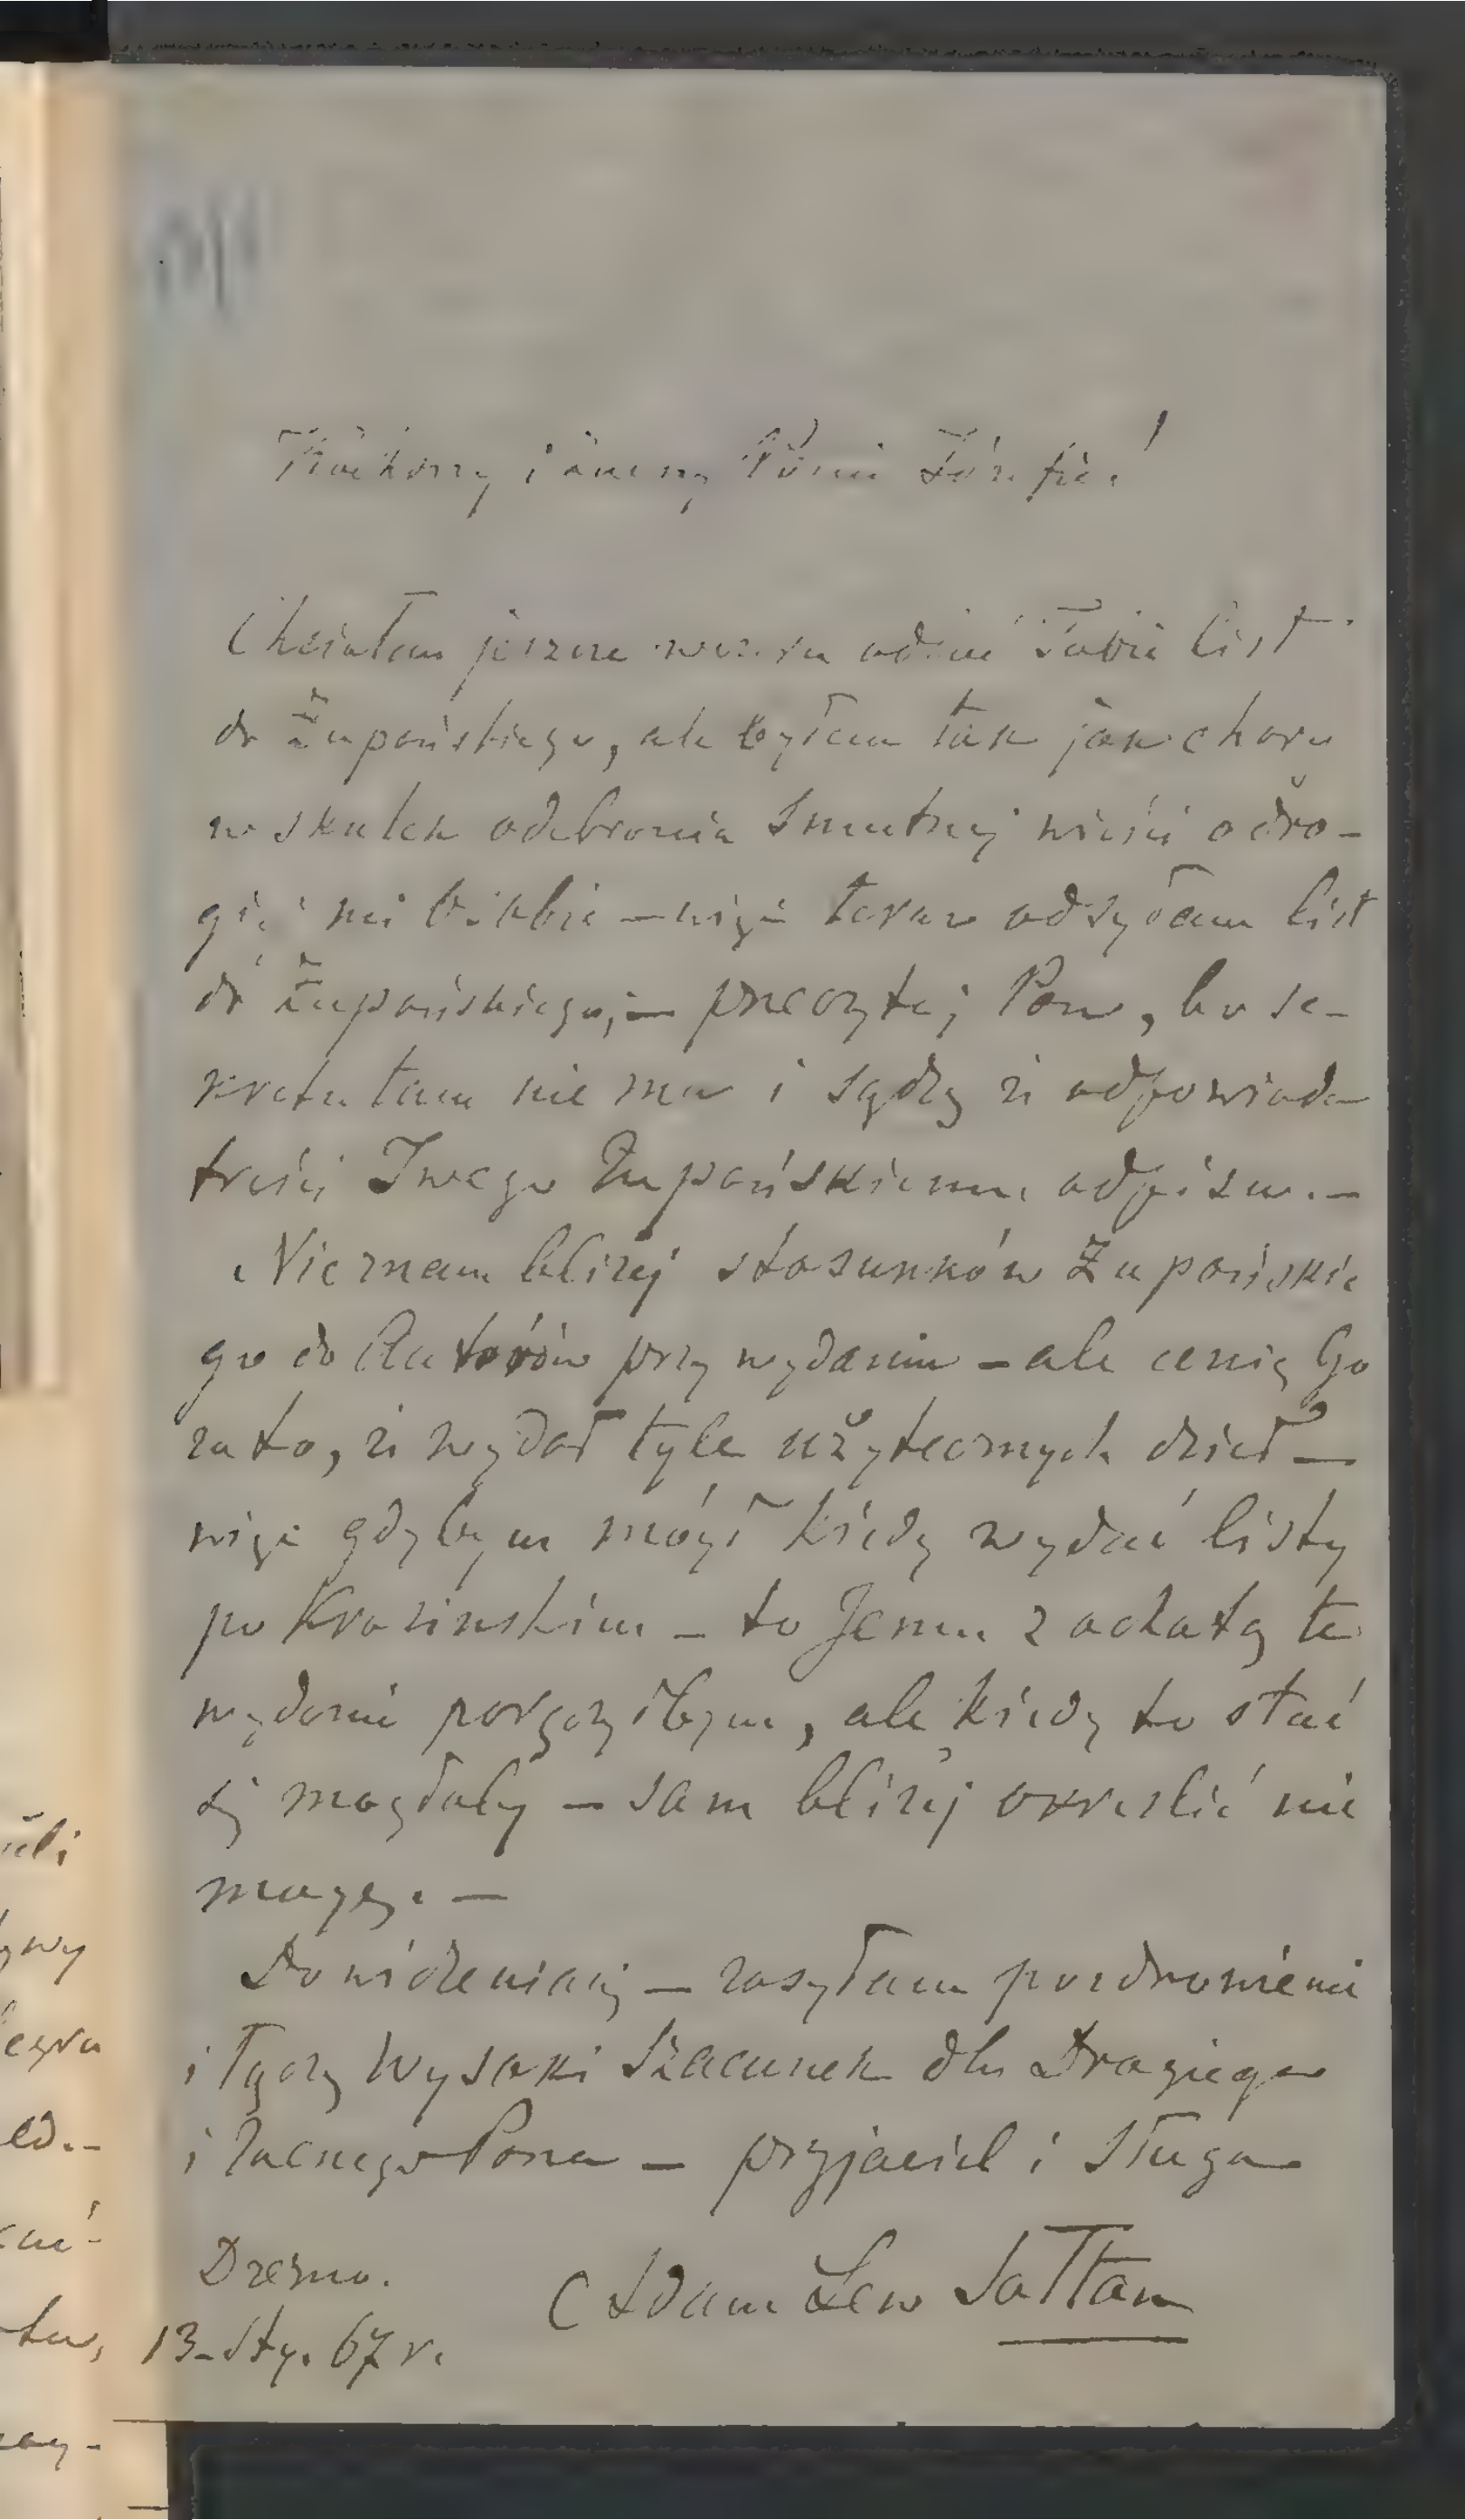 Kochany i zacny Panie Józefie!
Chciałem jeszcze wczora oddać Tobie list
do Żupańskiego, ale byłem tak jak chory
w skutek odebrania smutnej wieści o dro-
giéj mi osobie – więc teraz odsyłam list
do Żupańskiego; – przeczytaj Pan, bo se-
kretu tam nie ma i sądzę że odpowiada
treści Twego Żupańskiemu odpisu. –
Nie znam bliżej stosunków Żupańskie
go do Autorów przy wydaniu – ale cenię Go
za to, że wydał tyle użytecznych dzieł –
więc gdybym mógł kiedy wydać listy
po Krasinskim – to Jemu z ochotą te
wydanie poręczyłbym, ale kiedy to stać
się mogłoby – sam bliżej okreslić nie
mogę. –
Do widzenia się – zasyłam pozdrowienie
i łączę Wysoki Szacunek dla Drogiego
i Zacnego Pana – przyjaciel i sługa
Drezno.
Adam Lew Sołtan
13. Sty. 67 r.